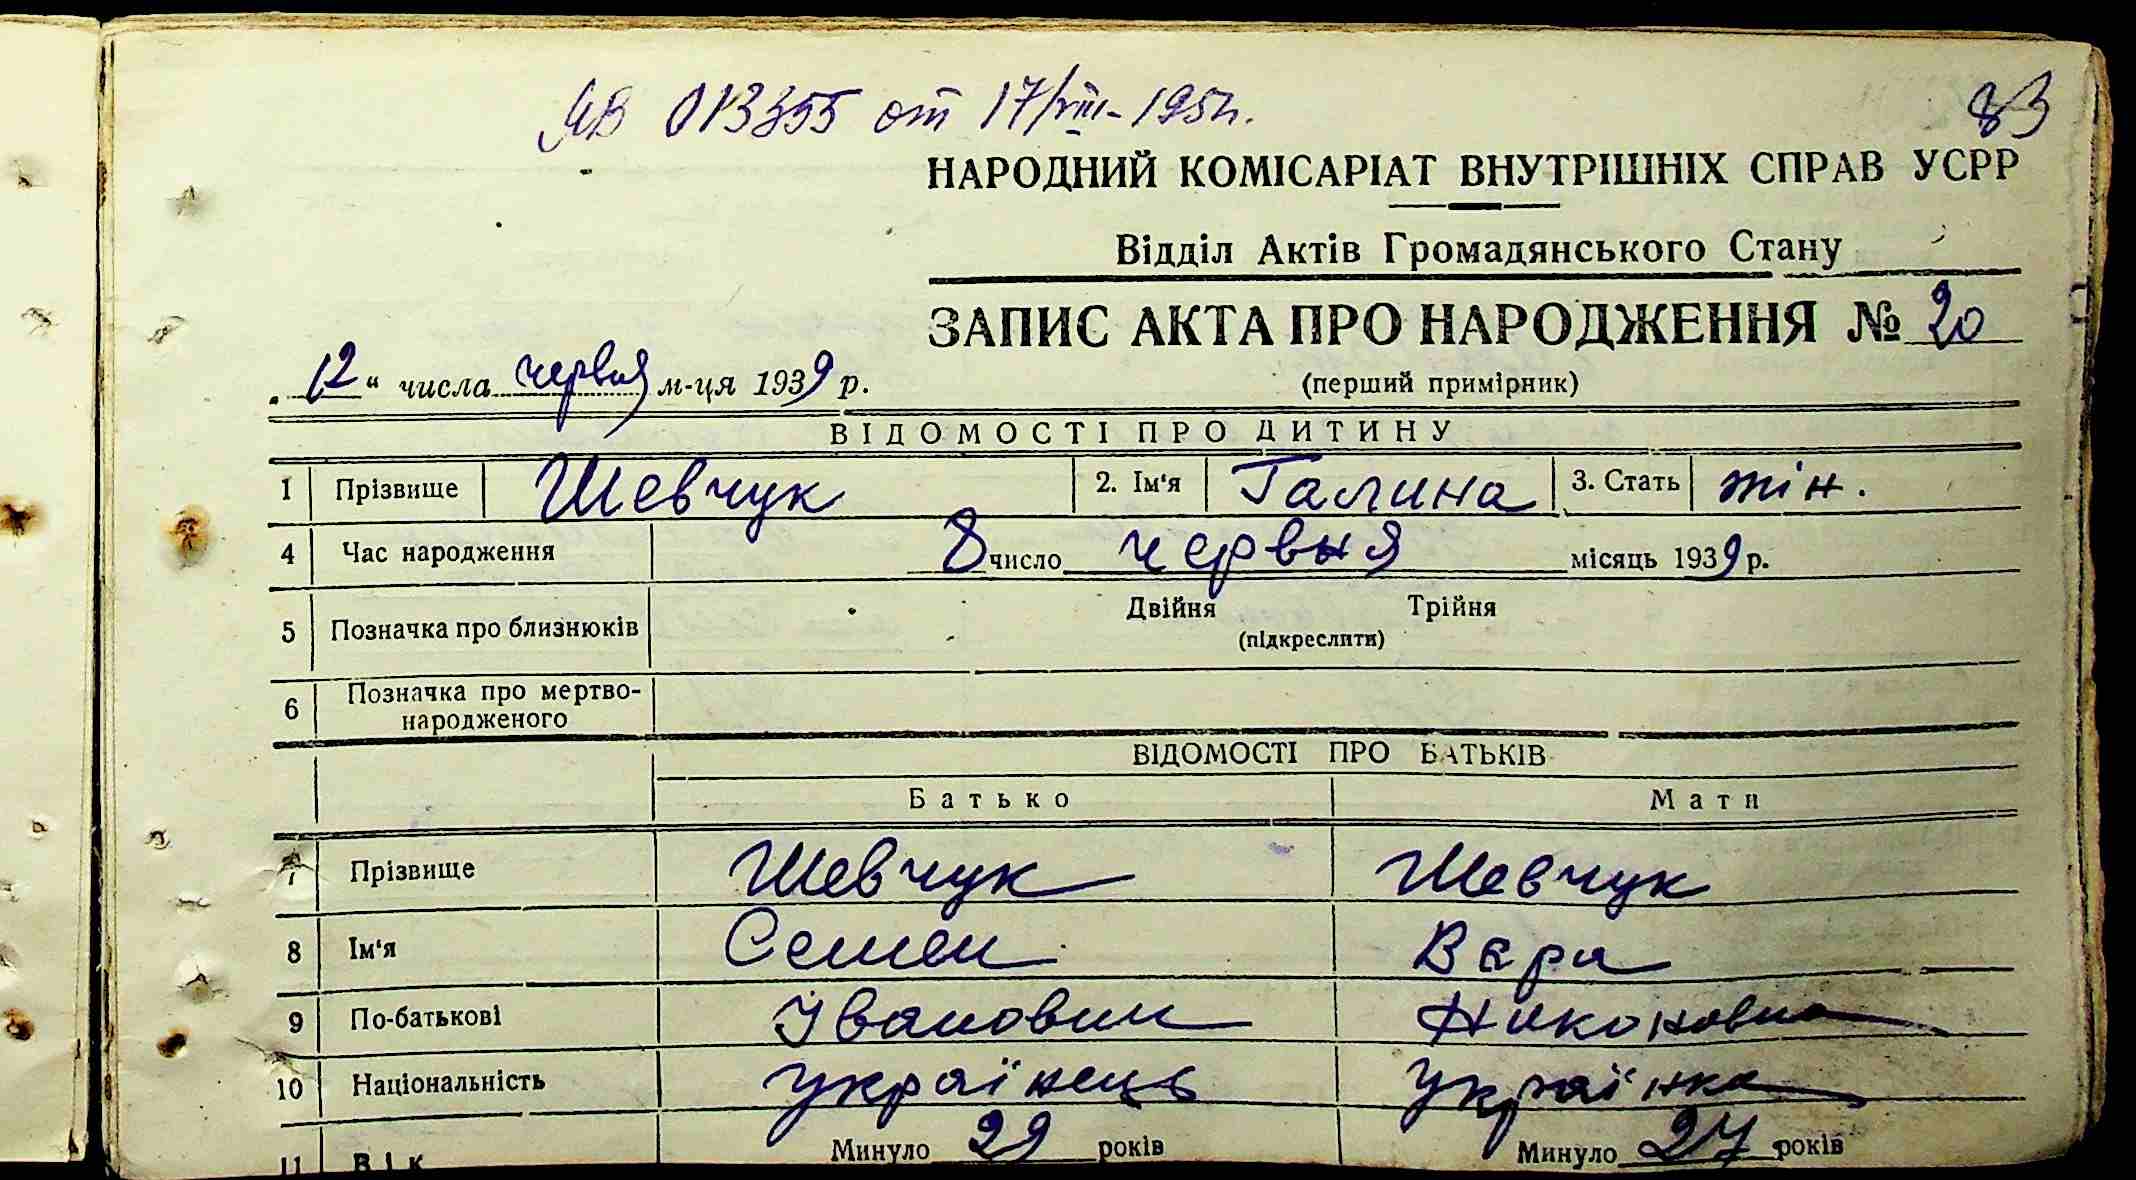 ЯВ 013355 от 17/VIII-195 г.
83
НАРОДНИЙ КОМІСАРІАТ ВНУТРІШНІХ СПРАВ УСРР
Відділ Актів Громадянського Стану
ЗАПИС АКТА ПРО НАРОДЖЕННЯ № 20
(перший примірник)
„12“ числа червня м-ця 1939 р.
ВІДОМОСТІ ПРО ДИТИНУ
1 Прізвище Шевчук 2. Ім'я Галина 3. Стать жін.
4 Час народження 8 число червня місяць 1939 р.
5 Позначка про близнюків Двійня Трійня
(підкреслити)
6 Позначка про мертво-
народженого
ВІДОМОСТІ ПРО БАТЬКІВ
Батько Мати
7 Прізвище Шевчук Шевчук
8 Ім'я Семен Вера
9 По-батькові Іванович Никоновна
10 Національність українець українка
11 Вік Минуло 29 років Минуло 27 років